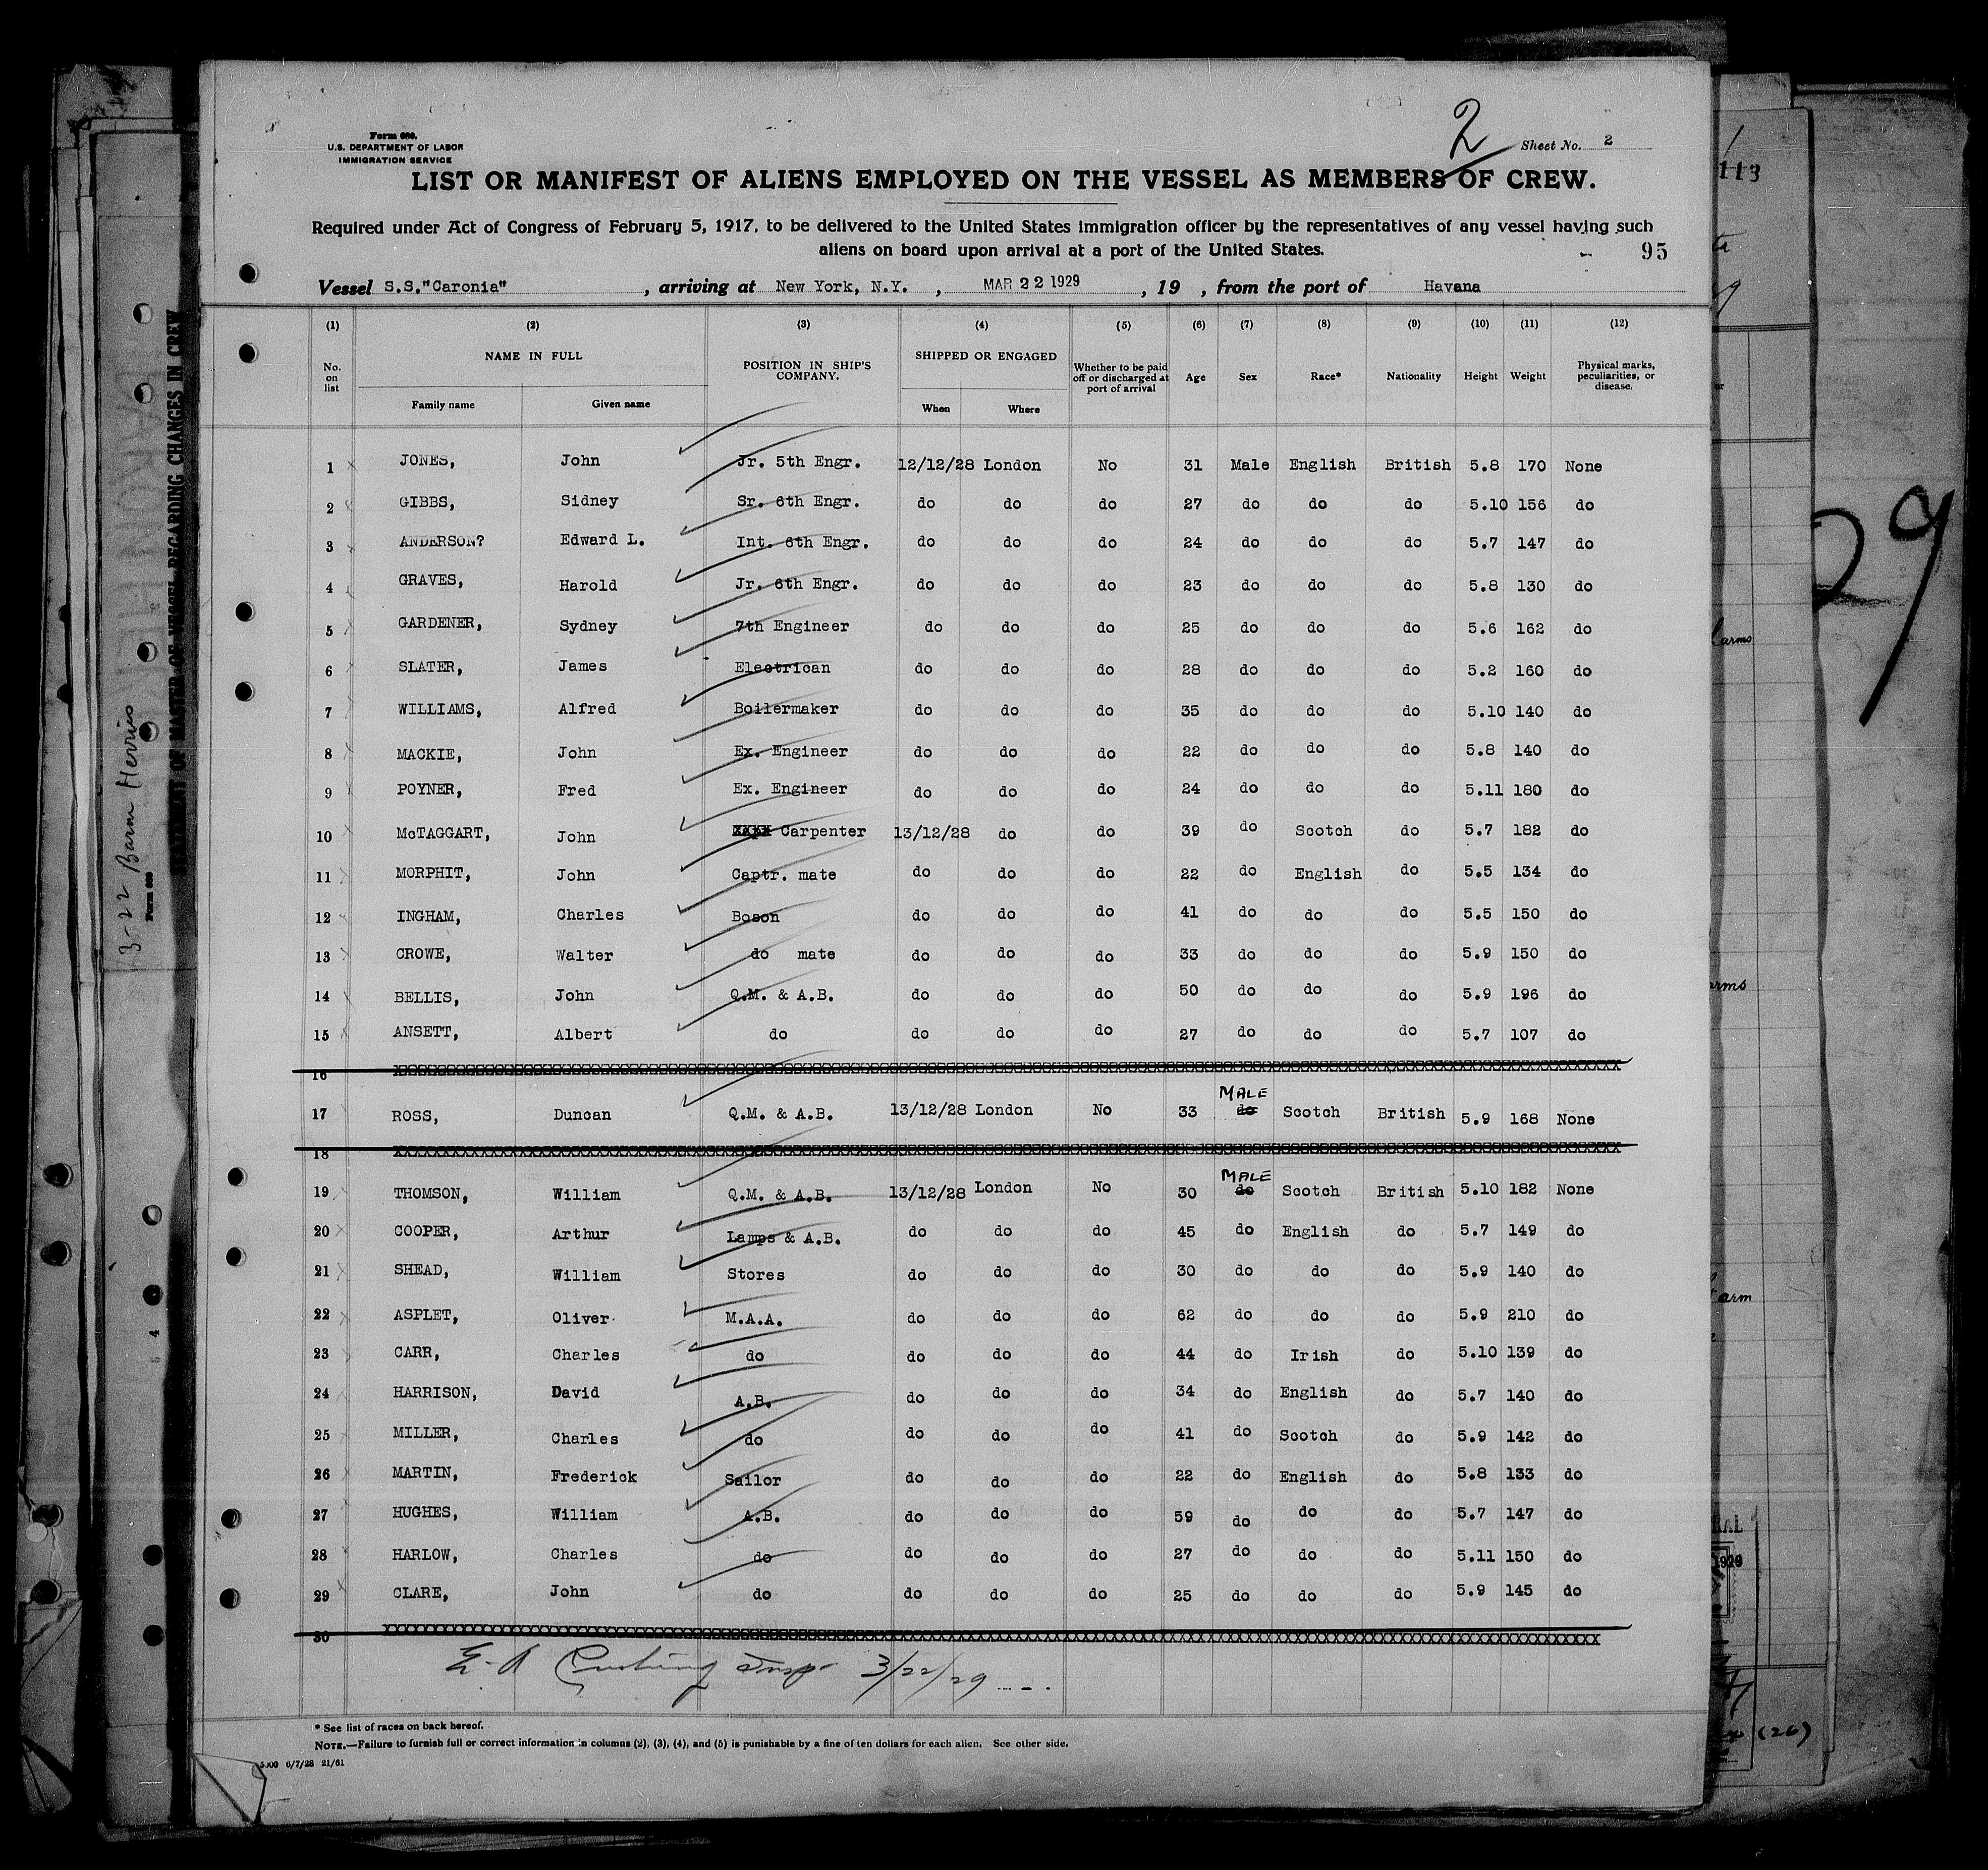 Form 680.
U.S. DEPARTMENT OF LABOR
IMMIGRATION SERVICE
2 Sheet No. 2
LIST OR MANIFEST OF ALIENS EMPLOYED ON THE VESSEL AS MEMBERS OF CREW.
Required under Act of Congress of February 5, 1917, to be delivered to the United States immigration officer by the representatives of any vessel having such
aliens on board upon arrival at a port of the United States.
95
Vessel S.S."Caronia" , arriving at New York, N.Y. , MAR 22 1929 , 19 , from the port of Havana
(1) (2) (3) (4) (5) (6) (7) (8) (9) (10) (11) (12)
No. on list NAME IN FULL Family name Given name POSITION IN SHIP'S COMPANY. SHIPPED OR ENGAGED When Where Whether to be paid off or discharged at port of arrival Age Sex Race* Nationality Height Weight Physical marks, peculiarities, or disease.
1 JONES, John Jr. 5th Engr. 12/12/28 London No 31 Male English British 5.8 170 None
2 GIBBS, Sidney Sr. 6th Engr. do do do 27 do do do 5.10 156 do
3 ANDERSON? Edward L. Int. 6th Engr. do do do 24 do do do 5.7 147 do
4 GRAVES, Harold Jr. 6th Engr. do do do 23 do do do 5.8 130 do
5 GARDENER, Sydney 7th Engineer do do do 25 do do do 5.6 162 do
6 SLATER, James Electrican do do do 28 do do do 5.2 160 do
7 WILLIAMS, Alfred Boilermaker do do do 35 do do do 5.10 140 do
8 MACKIE, John Ex. Engineer do do do 22 do do do 5.8 140 do
9 POYNER, Fred Ex. Engineer do do do 24 do do do 5.11 180 do
10 McTAGGART, John Carpenter 13/12/28 do do 39 do Scotch do 5.7 182 do
11 MORPHIT, John Captr. mate do do do 22 do English do 5.5 134 do
12 INGHAM, Charles Boson do do do 41 do do do 5.5 150 do
13 CROWE, Walter do mate do do do 33 do do do 5.9 150 do
14 BELLIS, John Q.M. & A.B. do do do 50 do do do 5.9 196 do
15 ANSETT, Albert do do do do 27 do do do 5.7 107 do
16
17 ROSS, Duncan Q.M. & A.B. 13/12/28 London No 33 MALE do Scotch British 5.9 168 None
18
19 THOMSON, William Q.M. & A.B. 13/12/28 London No 30 MALE do Scotch British 5.10 182 None
20 COOPER, Arthur Lamps & A.B. do do do 45 do English do 5.7 149 do
21 SHEAD, William Stores do do do 30 do do do 5.9 140 do
22 ASPLET, Oliver M.A.A. do do do 62 do do do 5.9 210 do
23 CARR, Charles do do do do 44 do Irish do 5.10 139 do
24 HARRISON, David A.B. do do do 34 do English do 5.7 140 do
25 MILLER, Charles do do do do 41 do Scotch do 5.9 142 do
26 MARTIN, Frederick Sailor do do do 22 do English do 5.8 133 do
27 HUGHES, William A.B. do do do 59 do do do 5.7 147 do
28 HARLOW, Charles do do do do 27 do do do 5.11 150 do
29 CLARE, John do do do do 25 do do do 5.9 145 do
30
E. A Cushing Insp. 3/22/29
* See list of races on back hereof.
NOTE.—Failure to furnish full or correct information in columns (2), (3), (4), and (5) is punishable by a fine of ten dollars for each alien. See other side.
6/7/28 21/61
STATEMENT OF MASTER OF VESSEL REGARDING CHANGES IN CREW
Form 689
3-22
113
29
arms
arms
arm
1929
(26)